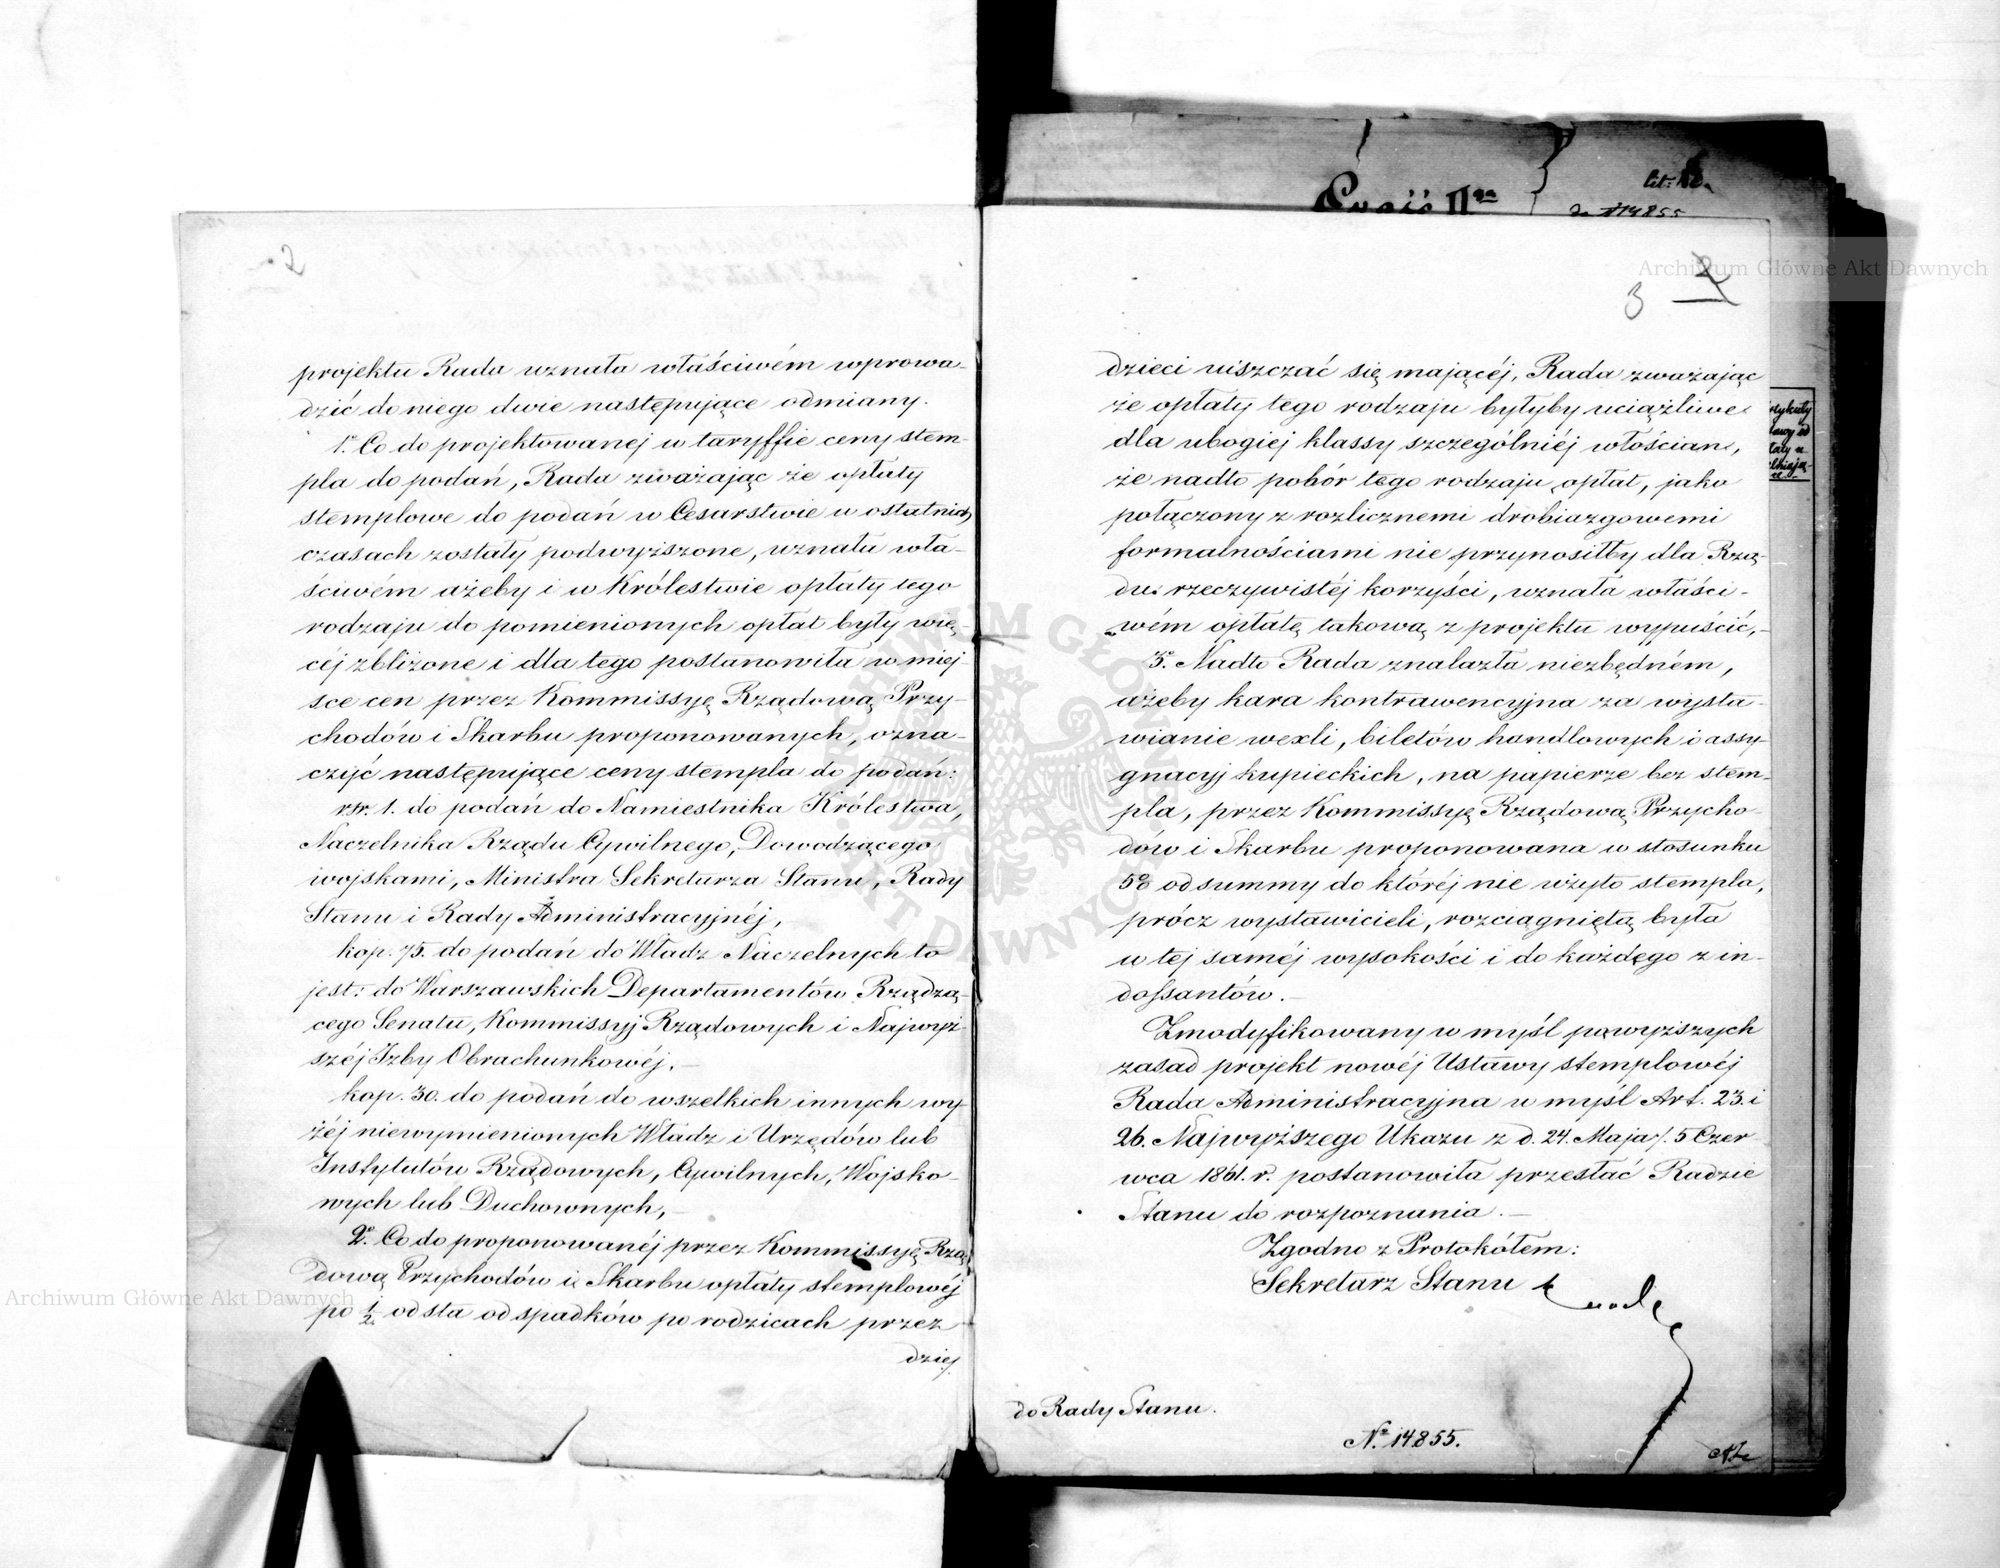 2
projektu Rada uznała właściwém wprowa-
dzić do niego dwie następujące odmiany.
1º Co do projektowanej w taryffie ceny stem-
pla do podań, Rada zważając że opłaty
stemplowe do podań w Cesarstwie w ostatnich
czasach zostały podwyższone, uznała wła-
ściwém ażeby i w Królestwie opłaty tego
rodzaju do pomienionych opłat były wię-
céj zbliżone i dla tego postanowiła w miej-
sce cen przez Kommissyę Rządową Przy-
chodów i Skarbu proponowanych, ozna-
czyć następujące ceny stempla do podań:
rsr. 1. do podań do Namiestnika Królestwa,
Naczelnika Rządu Cywilnego, Dowodzącego
wojskami, Ministra Sekretarza Stanu, Rady
Stanu i Rady Administracyjnéj,
kop. 75. do podań do Władz Naczelnych to
jest: do Warszawskich Departamentów Rządzą-
cego Senatu, Kommissyj Rządowych i Najwyż-
széj Izby Obrachunkowéj.—
kop. 30. do podań do wszelkich innych wy-
żéj niewymienionych Władz i Urzędów lub
Instytutów Rządowych, Cywilnych, Wojsko-
wych lub Duchownych,—
2º Co do proponowanéj przez Kommissyę Rzą-
dową Przychodów i Skarbu opłaty stemplowéj
po 1/2 od sta od spadków po rodzicach przez
dziej
Część IIga
lit:
do N 14855
3
dzieci uiszczać się mającéj, Rada zważając
że opłaty tego rodzaju byłyby uciążliwe
dla ubogiej klassy szczególniéj włościan,
że nadto pobór tego rodzaju opłat, jako
połączony z rozlicznemi drobiazgowemi
formalnościami nie przynosiłby dla Rzą-
du rzeczywistéj korzyści, uznała właści-
wém opłatę takową z projektu wypuścić,—
3º. Nadto Rada znalazła niezbędném,
ażeby kara kontrawencyjna za wysta-
wianie wexli, biletów handlowych i assy-
gnacyj kupieckich, na papierze bez stem-
pla, przez Kommissyę Rządową Przycho-
dów i Skarbu proponowana w stosunku
5% od summy do któréj nie użyto stempla,
prócz wystawicieli, rozciągniętą była
w tej saméj wysokości i do każdego z in-
dossantów.—
Zmodyfikowany w myśl powyższych
zasad projekt nowéj Ustawy stemplowéj
Rada Administracyjna w myśl Art. 23. i
26. Najwyższego Ukazu z d. 24. Maja/. 5 Czer-
wca 1861. r. postanowiła przesłać Radzie
Stanu do rozpoznania.—
Zgodno z Protokółem:
Sekretarz Stanu
do Rady Stanu.
Nº 14855.
Archiwum Główne Akt Dawnych
Archiwum Główne Akt Dawnych
ARCHIWUM GŁÓWNE AKT DAWNYCH